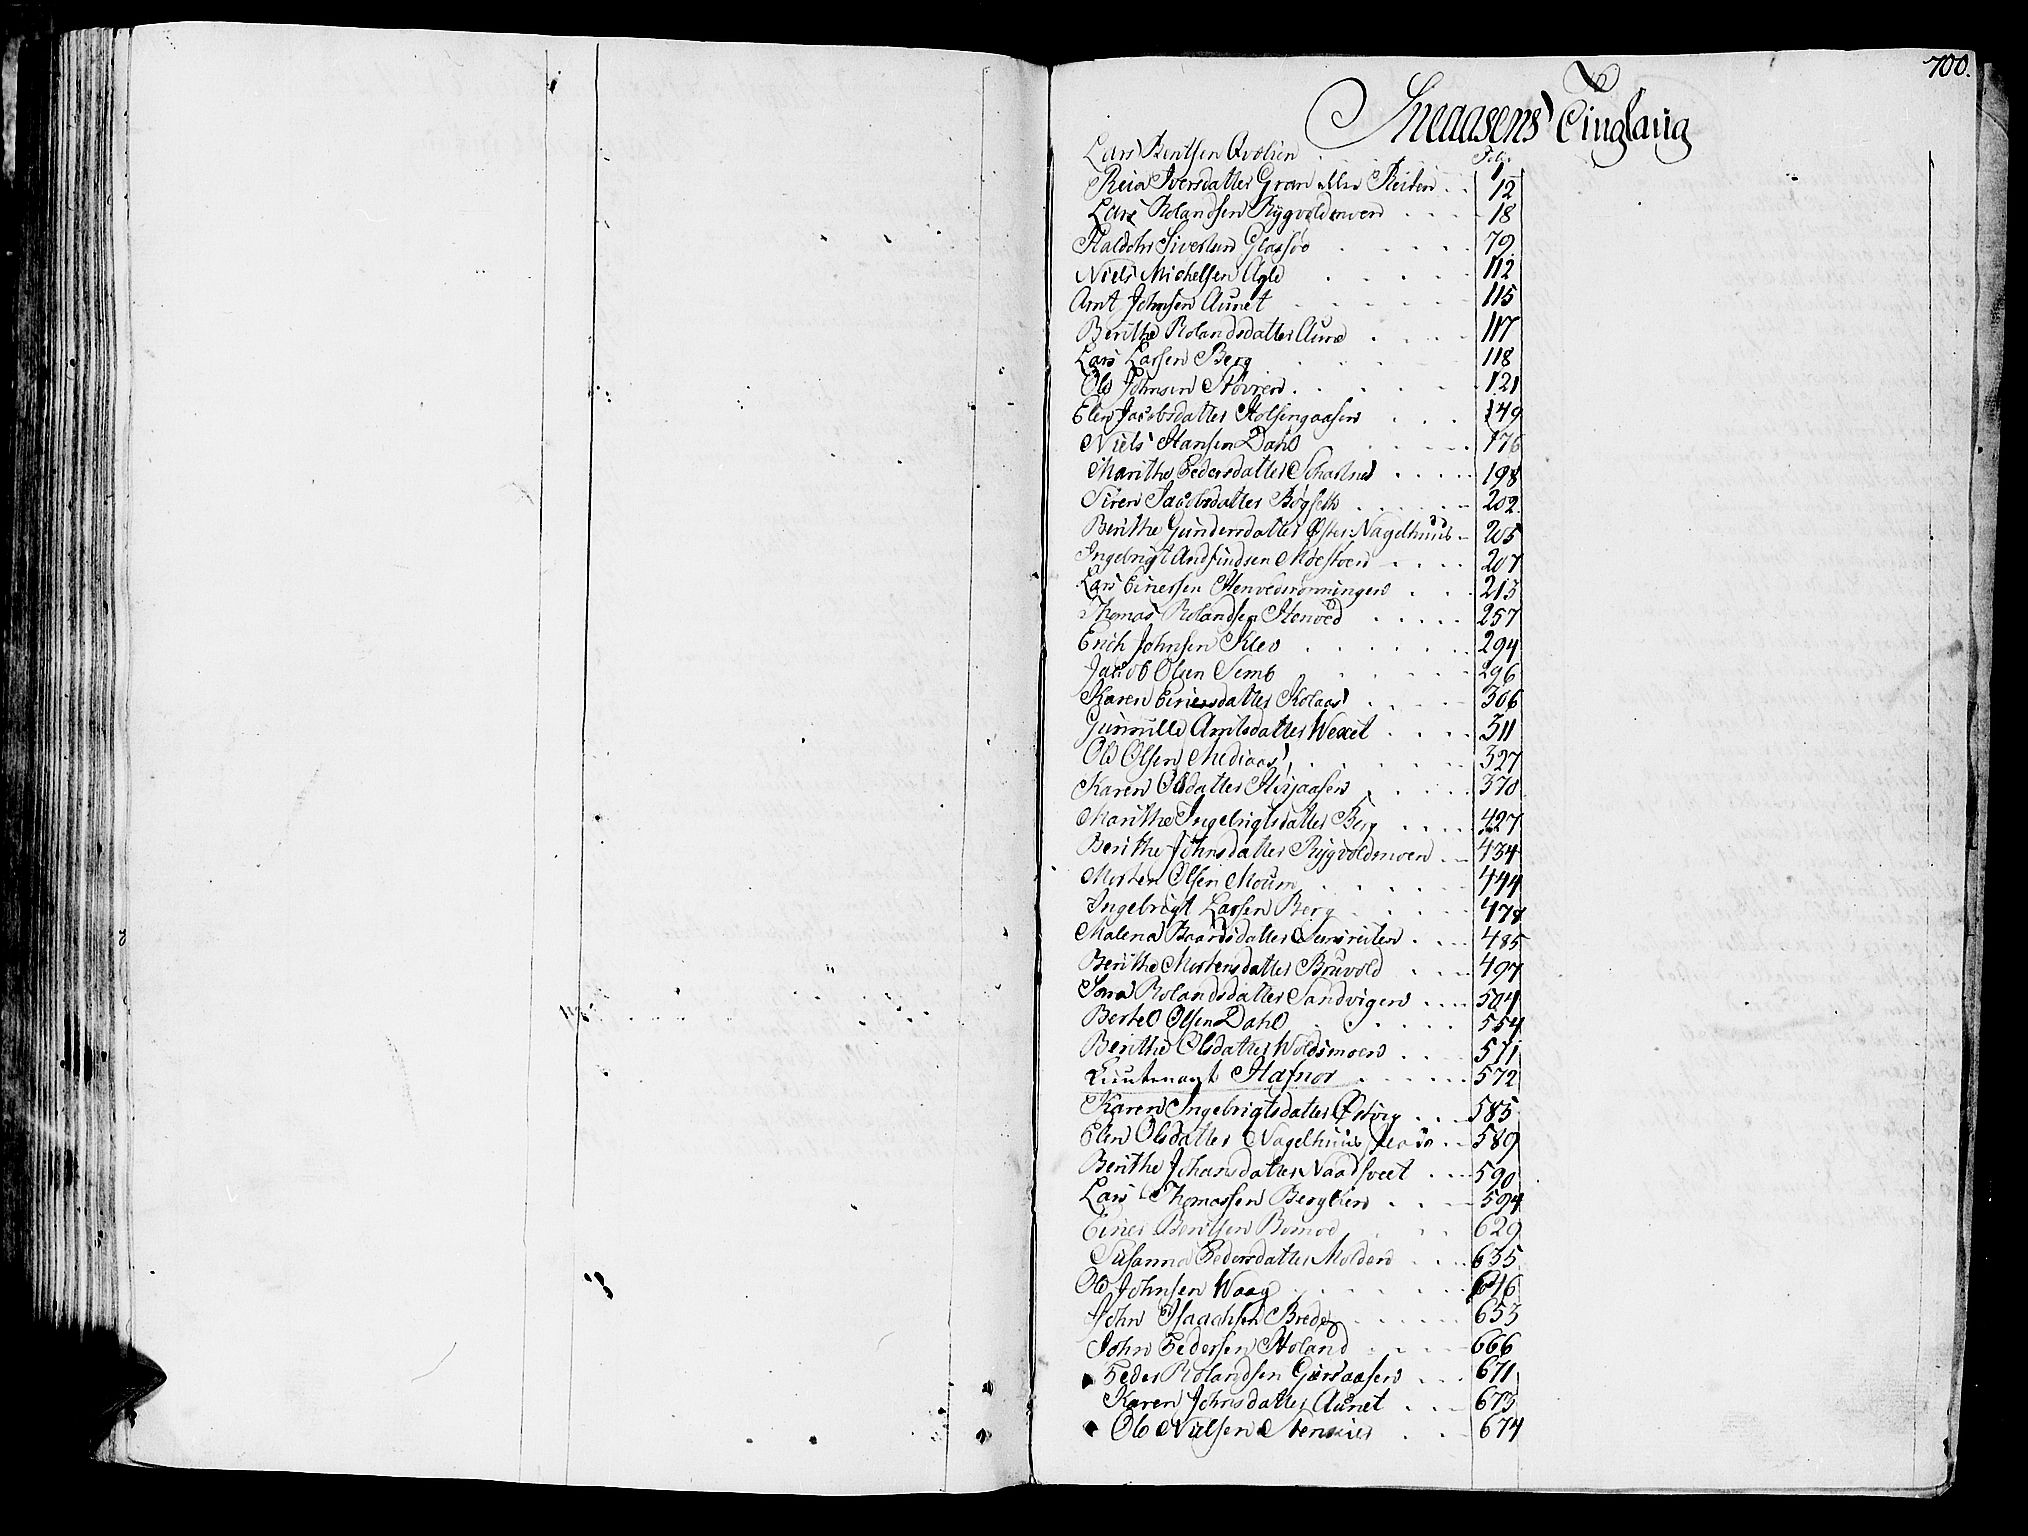 700.
Sneaasens Tinglaug
Folio
Lars Bentsen Qvelien . . . . 1
Iversdatter Gran eller Reiten . . 12
Lars Rolandsen Rygvoldmoen . . . . 18
Haldohr Sivertsen Glassöe . . . . . 79
Niels Michelsen Agle . . . . 112
Arnt Johnsen Aunet . . . . . . 115
Berithe Rolandsdatter Aune . . . . 117
Lars Larsen Berg . . . . 118
Ole Johnsen . . . . . 121
Elen Jacobsdatter Holsingaasen . . . . 149
Niels Hansen Dahl . . . . . 176
Marithe Pedersdatter . . . . . 198
Siren Jacobsdatter Bøgseth . . . . . . 202
Berithe Gundersdatter Øster Nagelhuus 205
Ingebrigt Andfindsen Moestuen . . . . 207
Lars Einersen Stenvedrønningen . . . 213
Thomas Rolandsen Stenved . . . . . 257
Erich Johnsen Klev . . . . . . . 294
Jacob Olsen Semb . . . . . . 296
Karen Einersdatter Holaas . . . . . 306
Gunnille Arntsdatter Wexet . . . . 311
Ole Olsen Mediaas . . . . . . . 327
Karen Olsdatter . . . . . 370
Marithe Ingebrigtsdatter Berg . . . . 427
Berithe Johnsdatter Rygvoldmoen . . . 434
Morten Olsen Moum . . . . . 444
Ingebrigt Larsen Berg . . . . . 478
Malena Baardsdatter Qvernreiten . . . . 485
Berithe Mortensdatter Bruvold . . . . 497
Sara Rolandsdatter Sandvigen . . . . 504
Bertel Olsen Dahl . . . . . 554
Berithe Olsdatter Woldsmoen . . . . 571
Lieutenant Hafnor . . . . . . 572
Karen Ingebrigtsdatter . . . 585
Elen Olsdatter Nagelhuus . . 589
Berithe Johansdatter . . . 590
Lars Thomassen Berglien . . . . 594
Einer Bentsen . . . 629
Susanna Pedersdatter Molden . . . . 635
Ole Johnsen Waag . . . . . . . 646
John Isaachsen Brede . . . . . . 653
John Pedersen Holand . . . . 666
Peder Rolandsen . . . 671
Karen Johnsdatter Aunet . . . 673
Ole Nielsen . . 674